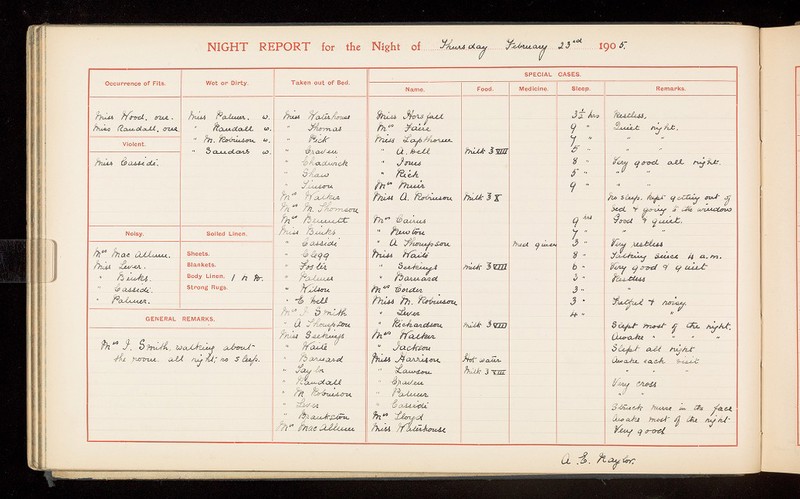 NIGHT REPORT for the Night of Thursday February 23rd 1905.
Occurrence of Fits.
Miss Wood. one.
Miss Randall. one
Violent.
Miss Cassidi.
Noisy.
Mrs Mac Allum.
Miss Lever.
" Binks.
" Cassidi.
" Palmer.
Wet or Dirty.
Miss Palmer. w.
" Randall w.
" M. Robinson w.
" Saudars w.
Soiled Linen.
Sheets.
Blankets.
Body Linen. 1
Strong Rugs.
GENERAL REMARKS.
Mrs J. Smith. walking about
the room. all night; no sleep.
Taken out of Bed.
Miss Waterhouse
" Thomas
" Pick
" Craven
" Chadwick
" Shaw
" Simson
Mrs Walker
" M. Thomson
Mrs Bennett
Miss Binks
" Cassidi
" Clegg
" Foster
" Palmer
" Wilson
" E. Bell
Mrs J. Smith
" A Thompson
Miss Seekings
" Waite
" Barnard
" Taylor
" Randall
" M. Robinson
" Lever
" Brankston
Mrs Mac Allum
SPECIAL CASES.
Name. Food. Medicine. Sleep. Remarks.
Miss Horsfall 3½ hrs Restless.
Mrs Faire 9 " Quiet night.
Miss Lapthorne 7 " "
" A. Bell Milk ℥VIII 5 " " "
" Jones 8 " Very good all night.
" Rich 5 " " "
Mrs Muir 9 " " "
Miss A. Robinson Milk ℥X No sleep. Kept getting out of
bed & going to the windows
Mrs Cairns 9 hrs Good & quiet.
" Newton 7 " "
" A Thompson Med given 3 " Very restless
Miss Waite 8 " Talking since 4 a.m.
" Seekings Milk ℥VIII 6 " Very good & quiet
" Barnard 3 " Restless
Mrs Corder 3 "
Miss M. Robinson 3 " Tearful & noisy.
" Lever 4 " "
" Richardson Milk ℥VIII Slept most of the night.
Mrs Walker Awake " " " "
" Jackson Slept all night
Miss Harrison Hot water Awake each visit
" Lawson Milk ℥VIII " " "
" Craven Very cross
" Palmer "
" Cassidi Struck nurse in the face
Mrs Lloyd Awake most of the night
Miss Waterhouse Very good
A. E. Naylor.